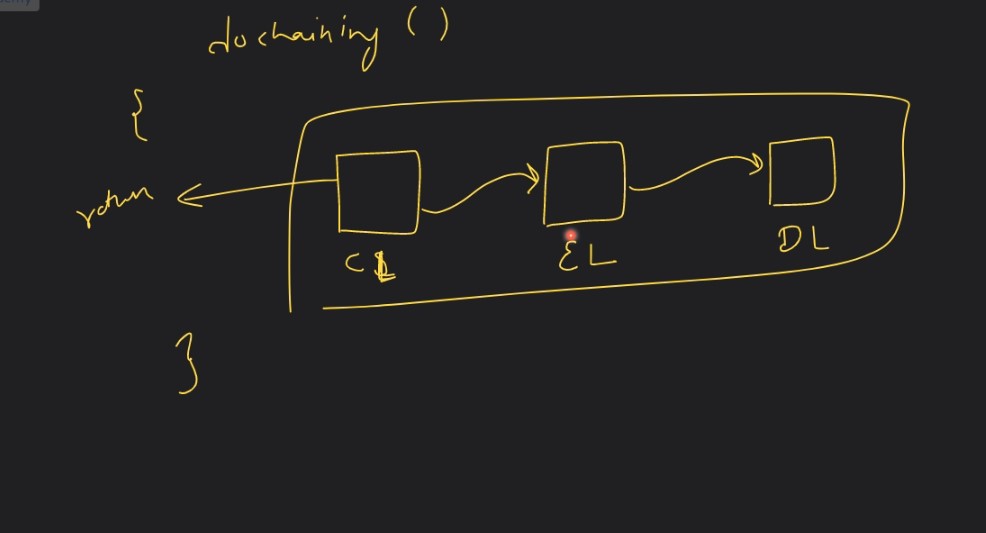 dochaining ()
{
return
CL
EL
DL
}